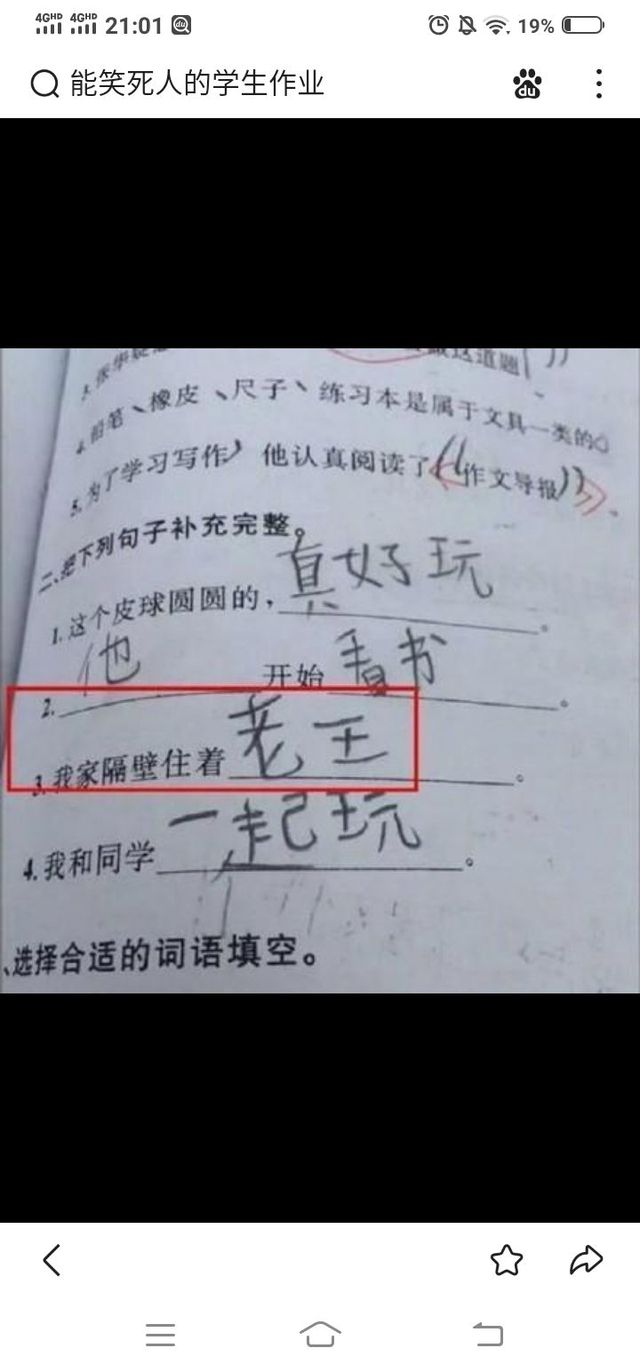 4GHD 4GHD 21:01 19%
能笑死人的学生作业
做这道题
4.铅笔、橡皮、尺子、练习本是属于文具一类的。
5.为了学习写作,他认真阅读了《作文导报》。
二、把下列句子补充完整。
1.这个皮球圆圆的,真好玩。
2.他开始看书。
3.我家隔壁住着老王。
4.我和同学一起玩。
、选择合适的词语填空。